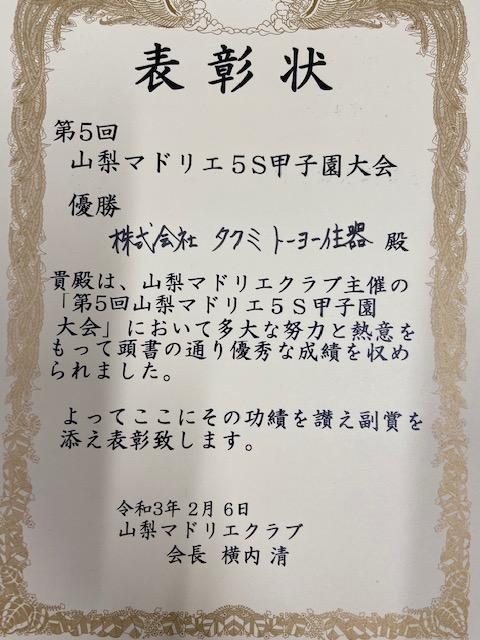 表彰状
第5回
山梨マドリエ5S甲子園大会
優勝
株式会社 タクミトーヨー住器 殿
貴殿は、山梨マドリエクラブ主催の
「第5回山梨マドリエ5S甲子園
大会」において多大な努力と熱意を
もって頭書の通り優秀な成績を収め
られました。
よってここにその功績を讃え副賞を
添え表彰致します。
令和3年 2月 6日
山梨マドリエクラブ
会長 横内 清